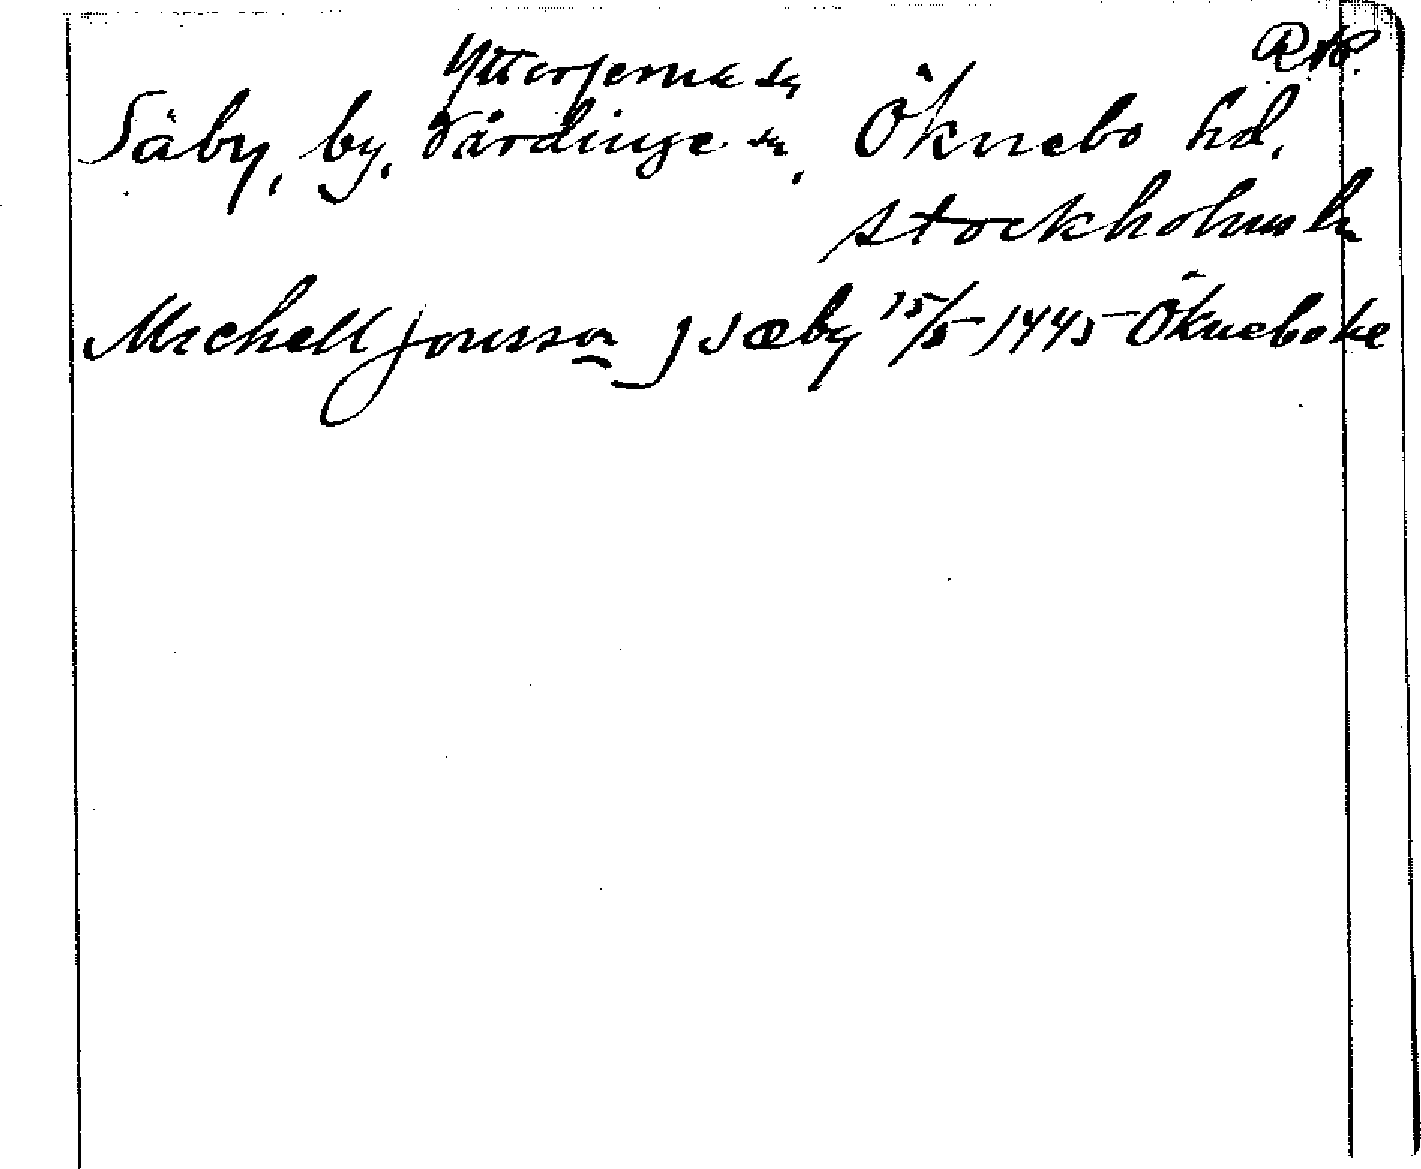 Ytterjerna sn
Säby, by, Vårdinge sn, Öknebo hd.
Stockholms ln
Mechell Jonsson j Sæby 15/5 1445 Öknebo hæ